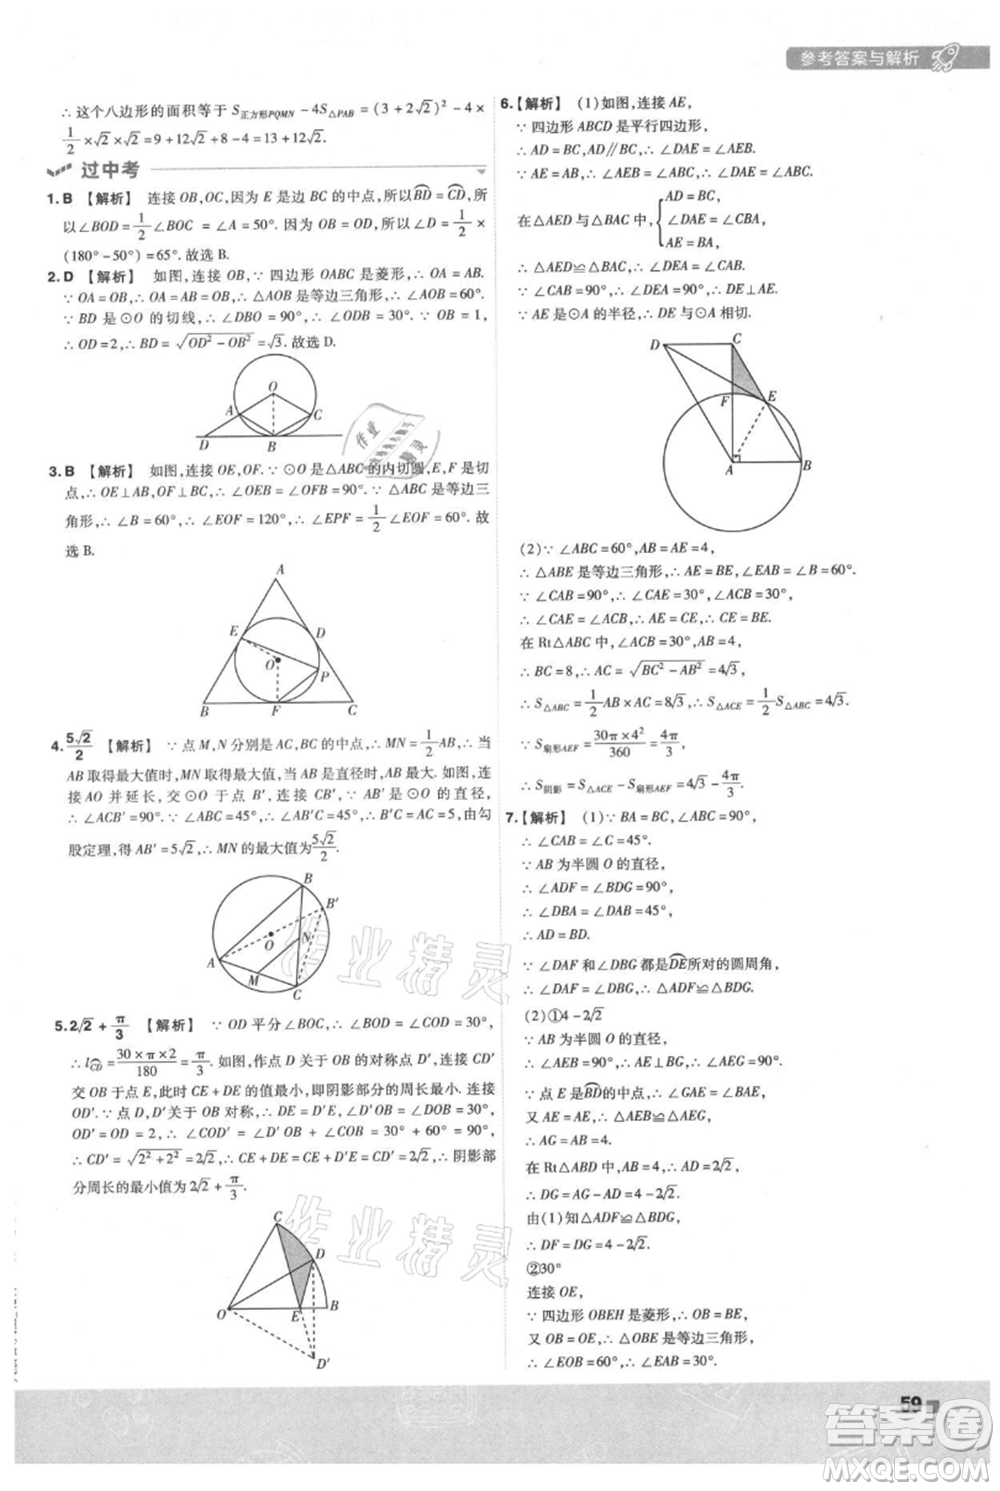 参考答案与解析
∴ 这个八边形的面积等于 S正方形PQMN − 4S△PAB = (3 + 2√2)² − 4 ×
1/2 × √2 × √2 = 9 + 12√2 + 8 − 4 = 13 + 12√2.
过中考
1. B 【解析】 连接 OB,OC,因为 E 是边 BC 的中点,所以 B͡D = C͡D,所
以 ∠BOD = 1/2∠BOC = ∠A = 50°. 因为 OB = OD,所以 ∠D = 1/2 ×
(180° − 50°) = 65°. 故选 B.
2. D 【解析】 如图,连接 OB,∵ 四边形 OABC 是菱形,∴ OA = AB.
∵ OA = OB,∴ OA = AB = OB,∴ △AOB 是等边三角形,∴ ∠AOB = 60°.
∵ BD 是⊙O 的切线,∴ ∠DBO = 90°,∴ ∠ODB = 30°. ∵ OB = 1,
∴ OD = 2,∴ BD = √(OD² − OB²) = √3. 故选 D.
O
A
C
D
B
3. B 【解析】 如图,连接 OE,OF. ∵ ⊙O 是△ABC 的内切圆,E,F 是切
点,∴ OE⊥AB,OF⊥BC,∴ ∠OEB = ∠OFB = 90°. ∵ △ABC 是等边三
角形,∴ ∠B = 60°,∴ ∠EOF = 120°,∴ ∠EPF = 1/2∠EOF = 60°. 故
选 B.
A
E
D
O
P
B
F
C
4. 5√2/2 【解析】 ∵ 点 M,N 分别是 AC,BC 的中点,∴ MN = 1/2AB,∴ 当
AB 取得最大值时,MN 取得最大值,当 AB 是直径时,AB 最大. 如图,连
接 AO 并延长,交⊙O 于点 B′,连接 CB′,∵ AB′是⊙O 的直径,
∴ ∠ACB′ = 90°. ∵ ∠AB′C = ∠ABC = 45°,AC = 5,∴ B′C = AC = 5,由勾
股定理,得 AB′ = 5√2,∴ MN 的最大值为 5√2/2.
B
B′
O
N
A
M
C
5. 2√2 + π/3 【解析】 ∵ OD 平分∠BOC,∴ ∠BOD = ∠COD = 30°,
∴ lC͡D = 30 × π × 2/180 = π/3. 如图,作点 D 关于 OB 的对称点 D′,连接 CD′
交 OB 于点 E,此时 CE + DE 的值最小,即阴影部分的周长最小. 连接
OD′. ∵ 点 D,D′关于 OB 对称,∴ DE = D′E,∠DOB = ∠BOD′ = 30°,
OD′ = OD = 2,∴ ∠COD′ = 90°,CE + DE = CE + D′E = CD′. ∵ OC = OB = 2,
∴ CD′ = √(2² + 2²) = 2√2,∴ CE + DE = CE + D′E = CD′ = 2√2,∴ 阴影部
分周长的最小值为 2√2 + π/3.
C
D
O
E
B
D′
6. 【解析】 (1)如图,连接 AE,
∵ 四边形 ABCD 是平行四边形,
∴ AD = BC,AD∥BC,∴ ∠DAE = ∠AEB.
∵ AE = AB,∴ ∠AEB = ∠ABC,∴ ∠DAE = ∠ABC.
在△AED 与△BAC 中, { AD = BC,
∠DAE = ∠CBA,
AE = BA,
∴ △AED≌△BAC,∴ ∠DEA = ∠CAB.
∵ ∠CAB = 90°,∴ ∠DEA = 90°,∴ DE⊥AE.
∵ AE 是⊙A 的半径,∴ DE 与⊙A 相切.
D
C
F
E
A
B
(2)∵ ∠ABC = 60°,AB = AE = 4,
∴ △ABE 是等边三角形,∴ AE = BE,∠EAB = 60°.
∵ ∠CAB = 90°,∴ ∠CAE = 30°,∠ACB = 30°,
∴ ∠CAE = ∠ACB,∴ AE = CE,∴ CE = BE.
在 Rt△ABC 中,∠ACB = 30°,AB = 4,
∴ BC = 8,∴ AC = √(BC² − AB²) = 4√3,
∴ S△ABC = 1/2AB × AC = 8√3,∴ S△ACE = 1/2S△ABC = 4√3.
∵ S扇形AEF = 30π × 4²/360 = 4π/3,
∴ S阴影 = S△ACE − S扇形AEF = 4√3 − 4π/3.
7. 【解析】 (1)∵ BA = BC,∠ABC = 90°,
∴ ∠CAB = ∠C = 45°.
∵ AB 为半圆 O 的直径,
∴ ∠ADF = ∠BDG = 90°,
∴ ∠DBA = ∠DAB = 45°,
∴ AD = BD.
∵ ∠DAF 和∠DBG 都是D͡E所对的圆周角,
∴ ∠DAF = ∠DBG,∴ △ADF≌△BDG.
(2)①4 − 2√2
∵ AB 为半圆 O 的直径,
∴ ∠AEB = 90°,∴ ∠AEG = 90°.
∵ 点 E 是B͡D的中点,∴ ∠GAE = ∠BAE,
又 AE = AE,∴ △BAE≌△GAE,
∴ AG = AB = 4.
在 Rt△ABD 中,AB = 4,∴ AD = 2√2,
∴ DG = AG − AD = 4 − 2√2,
由(1)知△ADF≌△BDG,
∴ DF = DG = 4 − 2√2.
②30°
连接 OE,
∵ 四边形 OBEH 是菱形,∴ OB = BE,
又 OB = OE,∴ △OBE 是等边三角形,
∴ ∠EOB = 60°,∴ ∠EAB = 30°.
59
作业精灵
作业精灵
作业精灵
答案圈
MXQE.COM